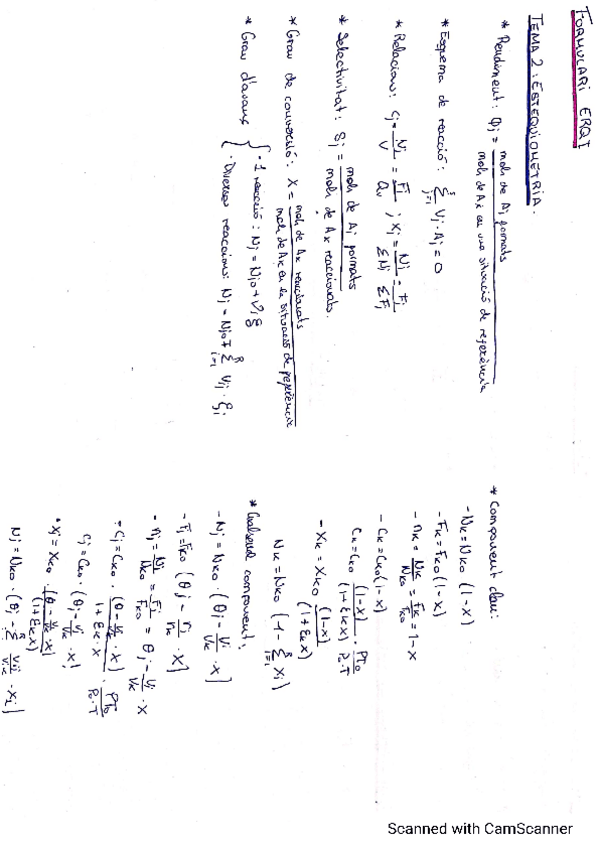 FORMULARI ERQI
TEMA 2: ESTEQUIOMETRIA.
* Rendiment: Φj = mols de Aj formats / mols de Ak en una situació de referència
* Esquema de reacció: Σ(j=1, s) νj · Aj = 0
* Relacions: Cj = Nj/V = Fj/Qv ; Xj = Nj/ΣNj = Fj/ΣFj
* Selectivitat: Sj = mols de Aj formats / mols de Ak reaccionats.
* Grau de conversió: X = mols de Ak reaccionats / mols de Ak en la situació de referència
* Grau d'avanç { · 1 reacció: Nj = Njo + νj ξ
· Diverses reaccions: Nj = Njo + Σ(i=1, R) νij · ξi
* Component clau:
- Nk = Nko (1 - X)
- Fk = Fko (1 - X)
- nk = Nk/Nko = Fk/Fko = 1 - X
- Ck = Cko (1 - X)
Ck = Cko (1-X)/(1+εkX) · PTo/PoT
- Xk = Xko (1-X)/(1+εkX)
Nk = Nko (1 - Σ(i=1, R) Xi)
* Qualsevol component:
- Nj = Nko · (θj - νj/νk · X)
- Fj = Fko (θj - νj/νk · X)
- nj = Nj/Nko = Fj/Fko = θj - νj/νk · X
- Cj = Cko · (θ - νj/νk · X)/(1 + εk·X) · PTo/Po·T
Cj = Cko · (θj - νj/νk · X)
· Xj = Xko · (θ - νj/νk X)/(1 + εkX)
Nj = Nko · (θj - Σ νij/νik · Xi)
Scanned with CamScanner